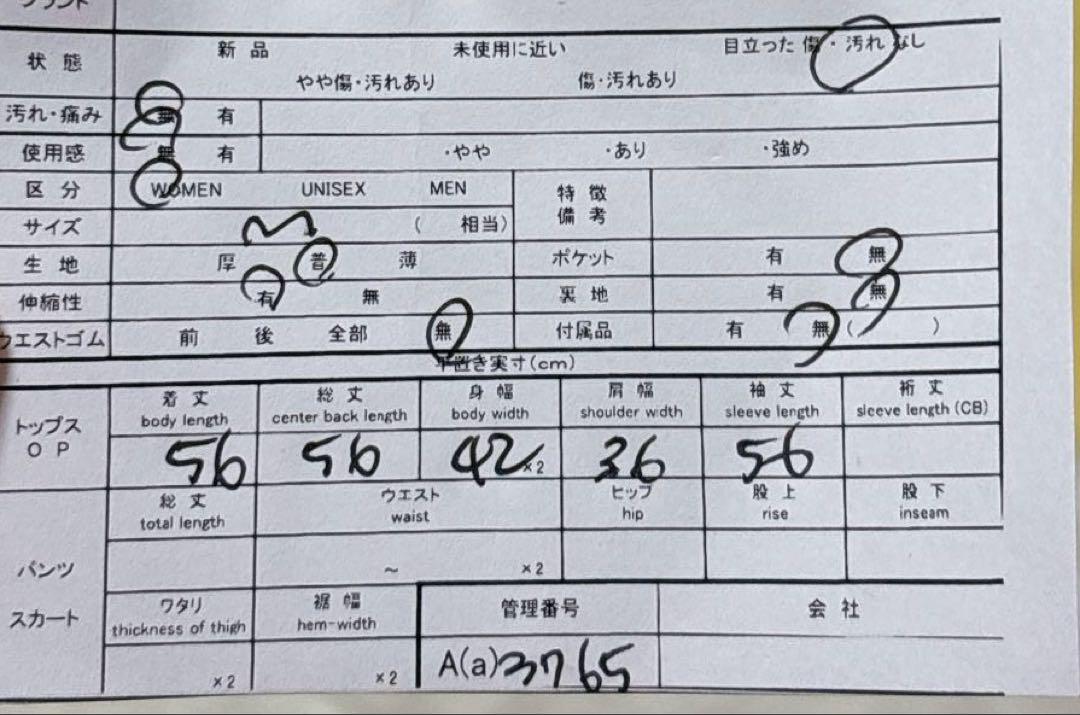 ブランド
状態 新品 未使用に近い 目立った傷・汚れなし
やや傷・汚れあり 傷・汚れあり
汚れ・痛み 無 有
使用感 無 有 ・やや ・あり ・強め
区分 WOMEN UNISEX MEN 特徴備考
サイズ M ( 相当)
生地 厚 普 薄 ポケット 有 無
伸縮性 有 無 裏地 有 無
ウエストゴム 前 後 全部 無 付属品 有 無 ( )
平置き実寸(cm)
着丈 総丈 身幅 肩幅 袖丈 裄丈
トップス body length center back length body width shoulder wdth sleeve length sleeve length (CB)
OP 56 56 42 ×2 36 56
総丈 ウエスト ヒップ 股上 股下
total length waist hip rise inseam
パンツ ~ ×2
スカート ワタリ 裾幅 管理番号 会社
thickness of thigh hem-width
×2 ×2 A(a)3765